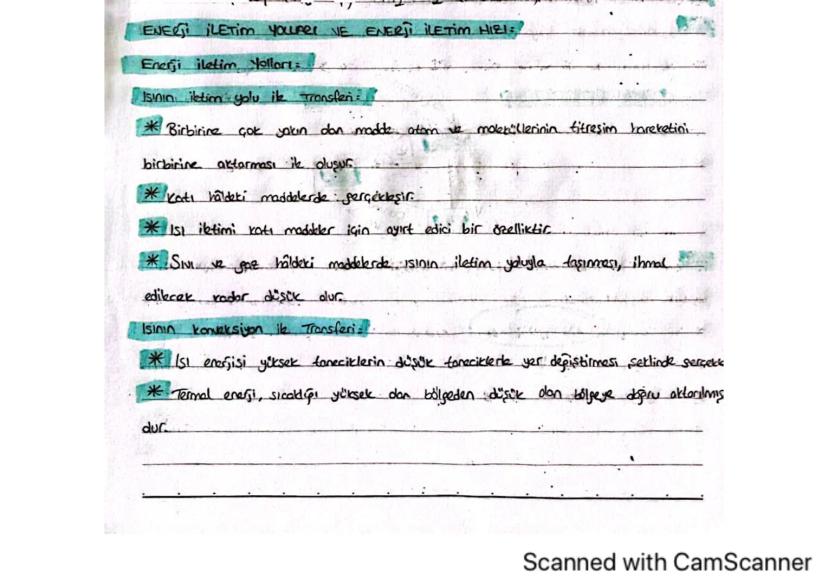 ENERJİ İLETİM YOLLARI VE ENERJİ İLETİM HIZI:
Enerji iletim Yolları:
Isının iletim yolu ile Transferi:
* Birbirine çok yakın olan madde atom ve moleküllerinin titreşim hareketini
birbirine aktarması ile oluşur.
* Katı hâldeki maddelerde gerçekleşir.
* Isı iletimi katı maddeler için ayırt edici bir özelliktir.
* Sıvı ve gaz hâldeki maddelerde ısının iletim yoluyla taşınması, ihmal
edilecek kadar düşük olur.
Isının konveksiyon ile Transferi:
* Isı enerjisi yüksek taneciklerin düşük taneciklerle yer değiştirmesi şeklinde gerçekle
* Termal enerji, sıcaklığı yüksek olan bölgeden düşük olan bölgeye doğru aktarılmış
olur.
Scanned with CamScanner